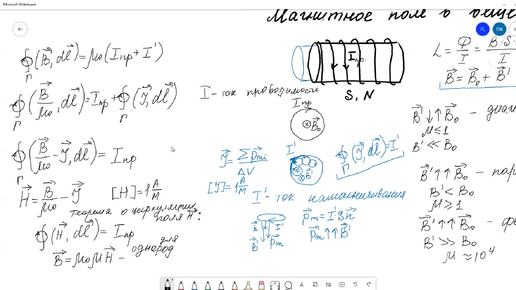 Microsoft Whiteboard
Магнитное поле в веще
ПК
∮_Г (B⃗, dl⃗) = μ₀(I_пр + I')
∮_Г (B⃗/μ₀, dl⃗) = I_пр + ∮_Г (J⃗, dl⃗)
∮_Г (B⃗/μ₀ - J⃗, dl⃗) = I_пр
H⃗ = B⃗/μ₀ - J⃗ [H] = 1 А/м
Теорема о циркуляции поля H⃗:
∮_Г (H⃗, dl⃗) = I_пр
B⃗ = μ₀μH⃗ - для однород
I_пр
S, N
I - ток проводимости
I_пр
B⃗₀
J⃗ = Σp⃗_mi / ΔV
[J] = 1 А/м
I'
B⃗₀
∮_Г (J⃗, dl⃗) = I'
I' - ток намагничивания
n⃗ I'
B⃗ p⃗_m
p⃗_m = I'Sn⃗
p⃗_m ↑↑ B⃗
L = Ф/I = B·S/I
B⃗ = B⃗₀ + B⃗'
B⃗' ↓↑ B⃗₀ - диа
μ ≤ 1
B' ≪ B₀
B⃗' ↑↑ B⃗₀ - пар
B' < B₀
μ ≥ 1
B⃗' ↑↑ B⃗₀ - фе
B' >> B₀
μ ≈ 10⁴